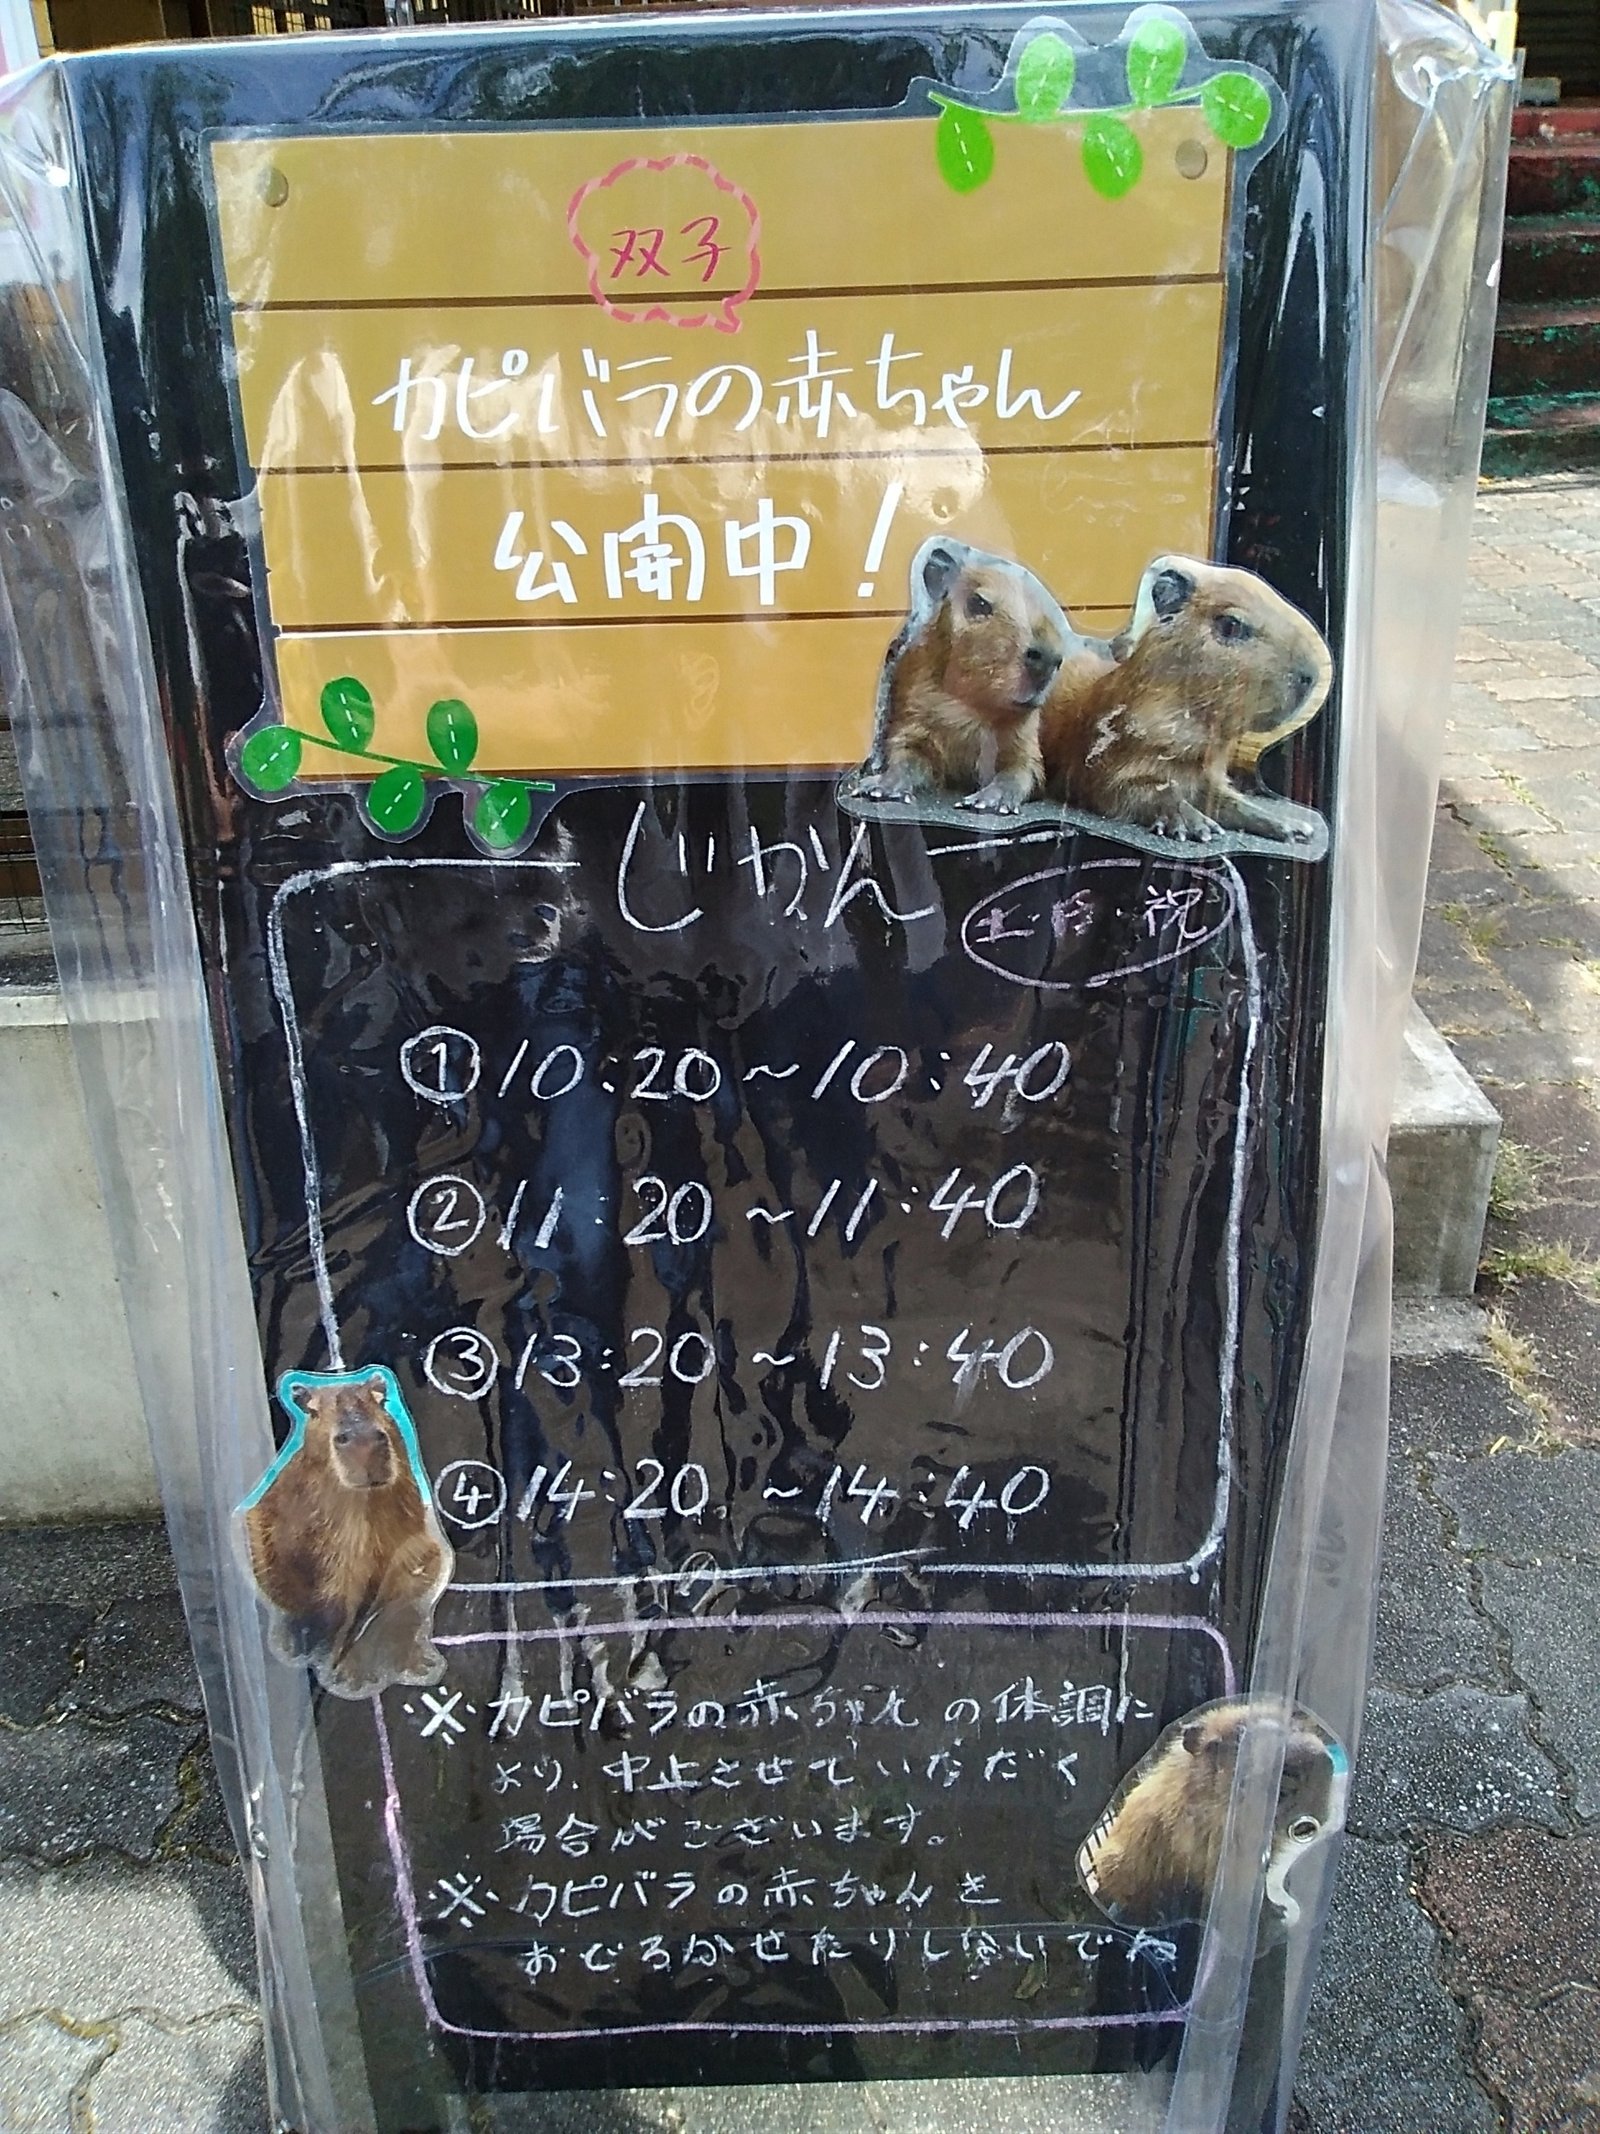 双子
カピバラの赤ちゃん
公開中！
じかん
土・日・祝
①10:20～10:40
②11:20～11:40
③13:20～13:40
④14:20～14:40
※カピバラの赤ちゃんの体調に
より、中止させていただく
場合がございます。
※カピバラの赤ちゃんを
おどろかせたりしないでね